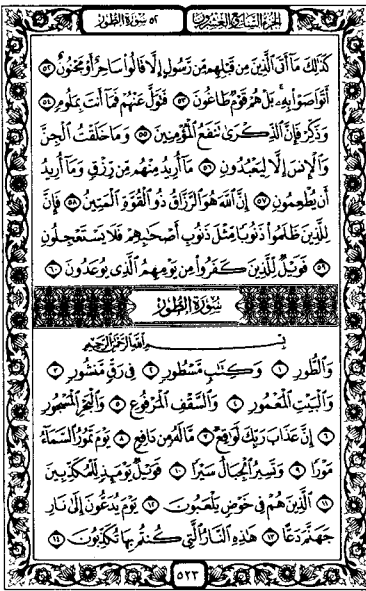 الجزء السابع والعشرون ٥٢ سورة الطور
كَذَٰلِكَ مَآ أَتَى ٱلَّذِينَ مِن قَبْلِهِم مِّن رَّسُولٍ إِلَّا قَالُوا۟ سَاحِرٌ أَوْ مَجْنُونٌ ٥٢
أَتَوَاصَوْا۟ بِهِۦ بَلْ هُمْ قَوْمٌ طَاغُونَ ٥٣ فَتَوَلَّ عَنْهُمْ فَمَآ أَنتَ بِمَلُومٍ ٥٤
وَذَكِّرْ فَإِنَّ ٱلذِّكْرَىٰ تَنفَعُ ٱلْمُؤْمِنِينَ ٥٥ وَمَا خَلَقْتُ ٱلْجِنَّ
وَٱلْإِنسَ إِلَّا لِيَعْبُدُونِ ٥٦ مَآ أُرِيدُ مِنْهُم مِّن رِّزْقٍ وَمَآ أُرِيدُ
أَن يُطْعِمُونِ ٥٧ إِنَّ ٱللَّهَ هُوَ ٱلرَّزَّاقُ ذُو ٱلْقُوَّةِ ٱلْمَتِينُ ٥٨ فَإِنَّ
لِلَّذِينَ ظَلَمُوا۟ ذَنُوبًا مِّثْلَ ذَنُوبِ أَصْحَٰبِهِمْ فَلَا يَسْتَعْجِلُونِ
٥٩ فَوَيْلٌ لِّلَّذِينَ كَفَرُوا۟ مِن يَوْمِهِمُ ٱلَّذِى يُوعَدُونَ ٦٠
سورة الطور
بِسْمِ ٱللَّهِ ٱلرَّحْمَٰنِ ٱلرَّحِيمِ
وَٱلطُّورِ ١ وَكِتَٰبٍ مَّسْطُورٍ ٢ فِى رَقٍّ مَّنشُورٍ ٣
وَٱلْبَيْتِ ٱلْمَعْمُورِ ٤ وَٱلسَّقْفِ ٱلْمَرْفُوعِ ٥ وَٱلْبَحْرِ ٱلْمَسْجُورِ
٦ إِنَّ عَذَابَ رَبِّكَ لَوَٰقِعٌ ٧ مَّا لَهُۥ مِن دَافِعٍ ٨ يَوْمَ تَمُورُ ٱلسَّمَآءُ
مَوْرًا ٩ وَتَسِيرُ ٱلْجِبَالُ سَيْرًا ١٠ فَوَيْلٌ يَوْمَئِذٍ لِّلْمُكَذِّبِينَ
١١ ٱلَّذِينَ هُمْ فِى خَوْضٍ يَلْعَبُونَ ١٢ يَوْمَ يُدَعُّونَ إِلَىٰ نَارِ
جَهَنَّمَ دَعًّا ١٣ هَٰذِهِ ٱلنَّارُ ٱلَّتِى كُنتُم بِهَا تُكَذِّبُونَ ١٤
٥٢٣